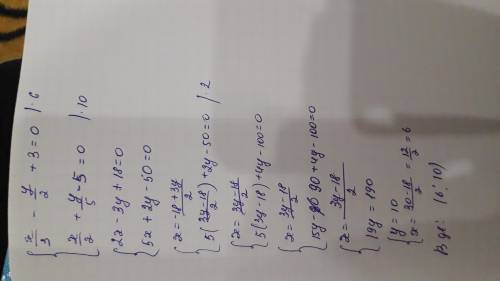 x/3 - y/2 + 3 = 0 | · 6
x/2 + y/5 - 5 = 0 | · 10
2x - 3y + 18 = 0
5x + 2y - 50 = 0
x = (-18 + 3y)/2
5((3y - 18)/2) + 2y - 50 = 0 | · 2
x = (3y - 18)/2
5(3y - 18) + 4y - 100 = 0
x = (3y - 18)/2
15y 90 + 4y - 100 = 0
x = (3y - 18)/2
19y = 190
y = 10
x = (30 - 18)/2 = 12/2 = 6
(6; 10)